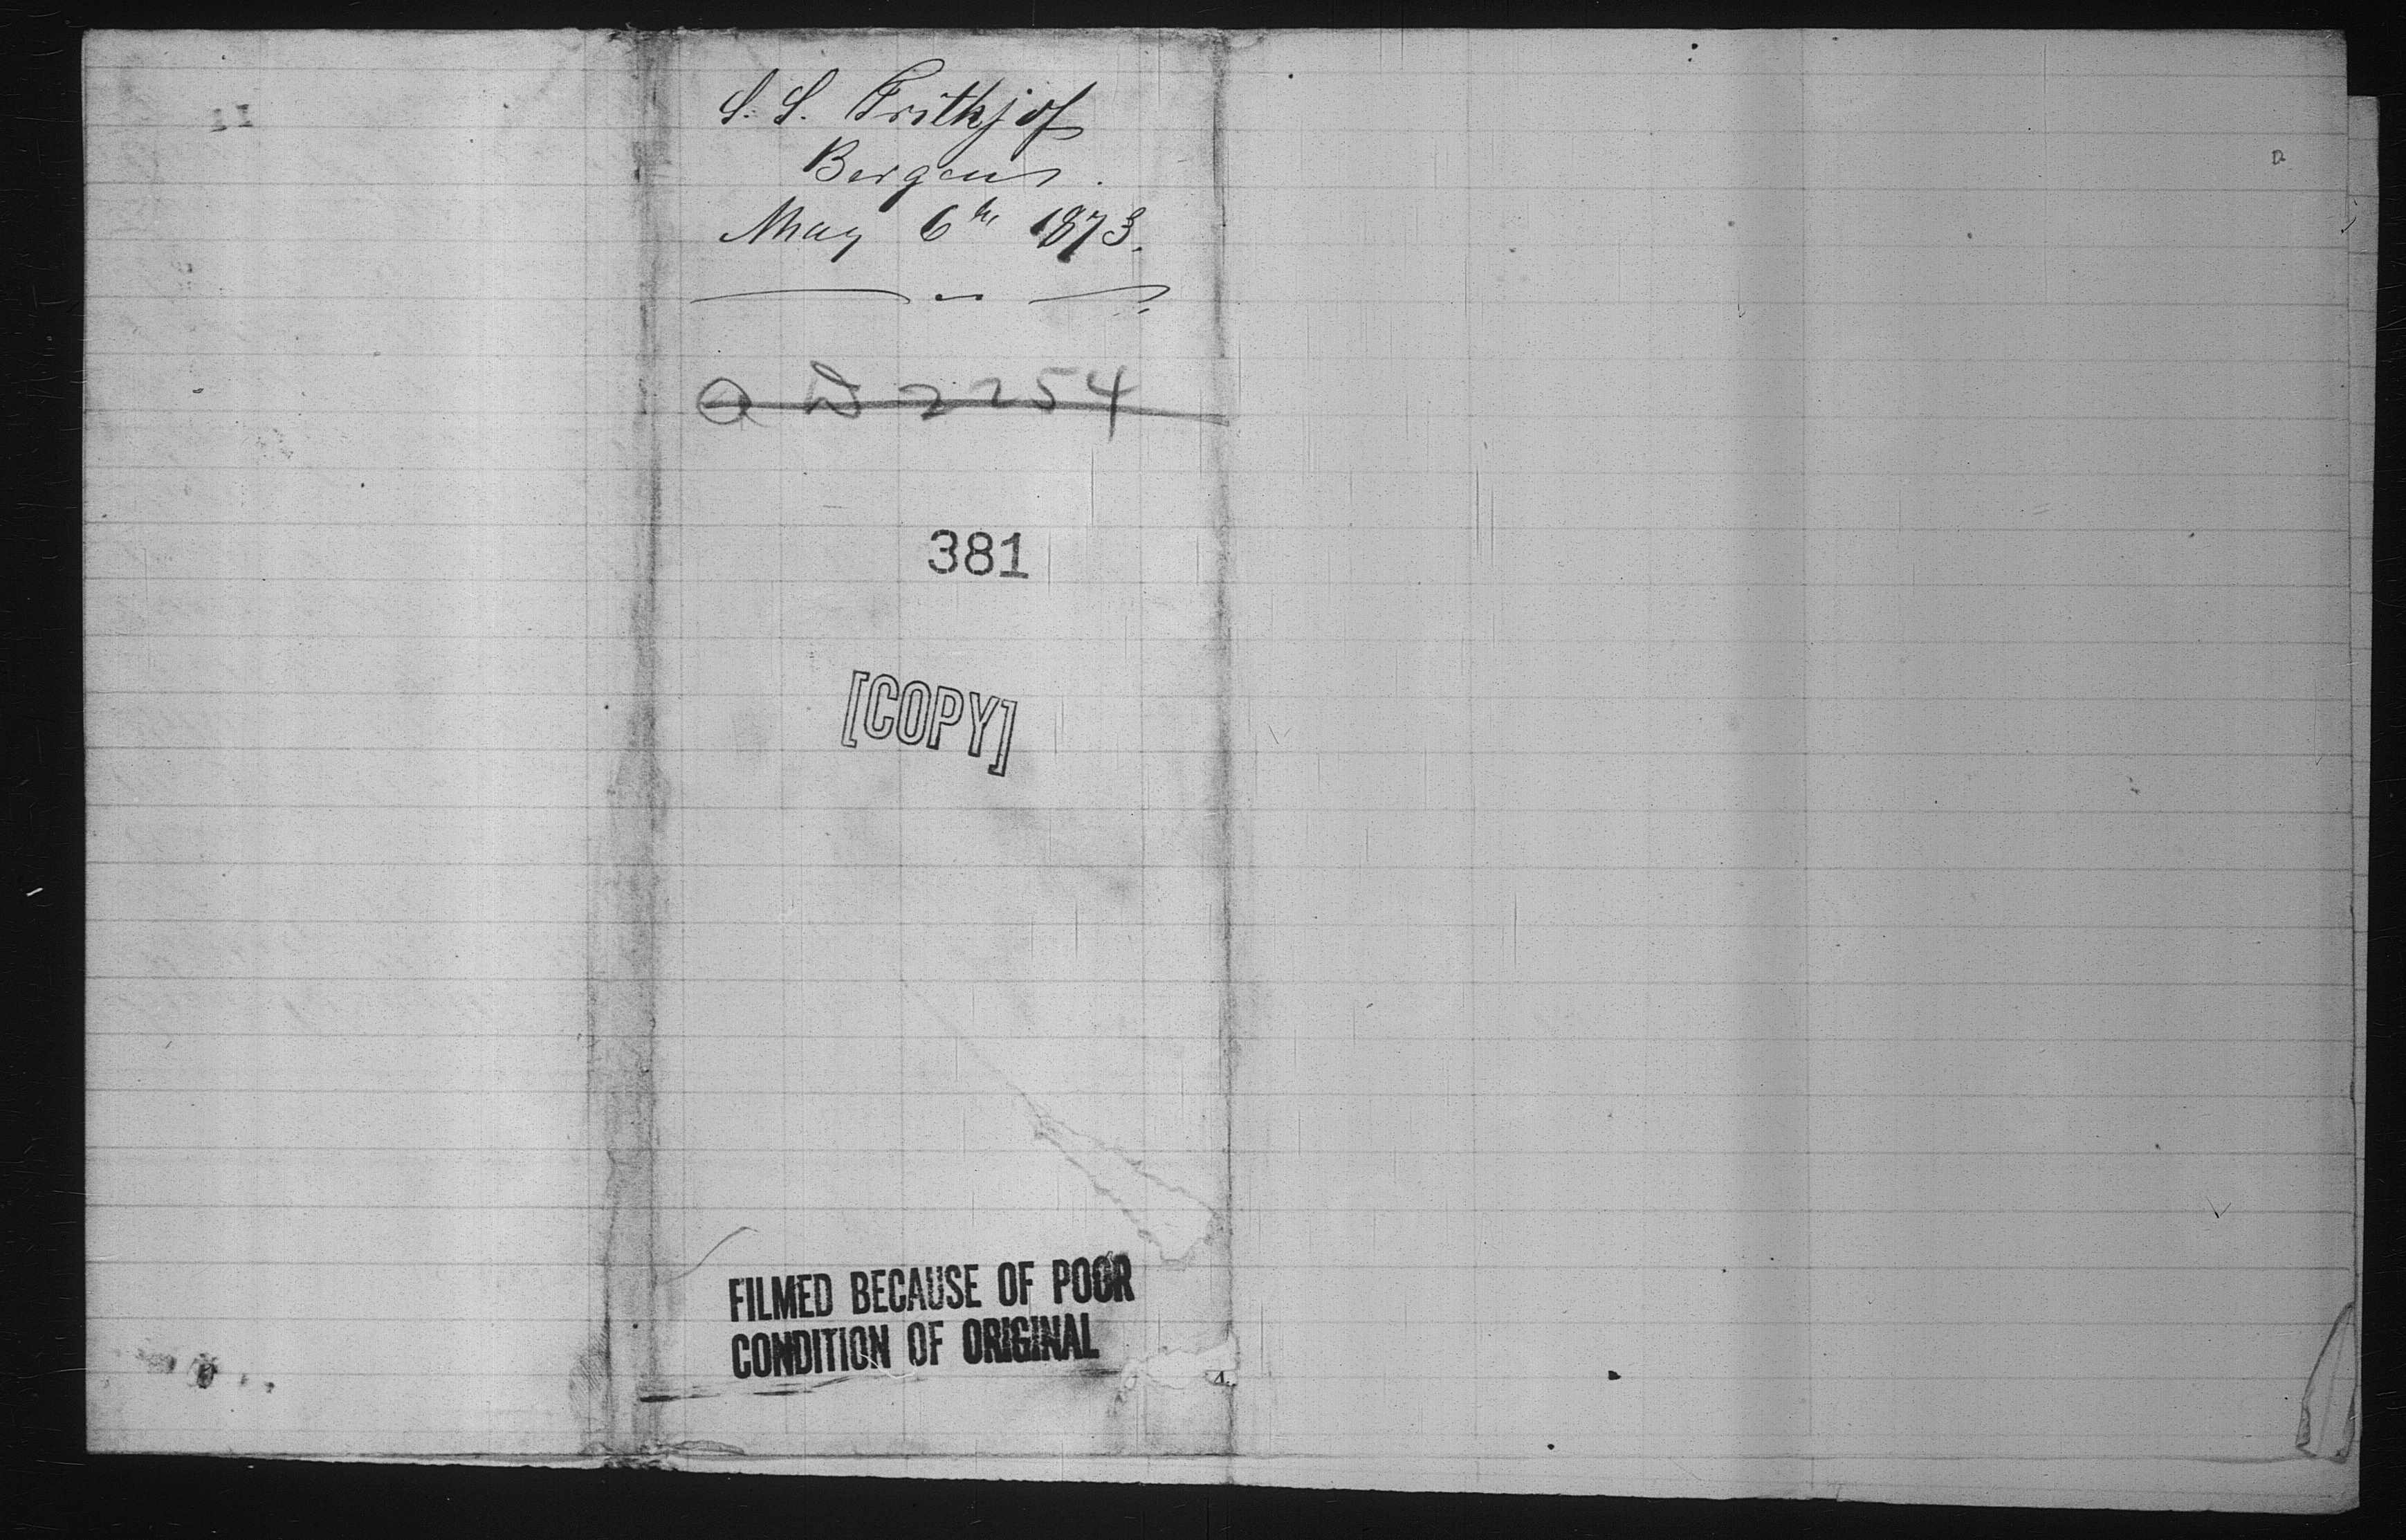 S. S. Frithjof
Bergen.
May 6th 1873.
2254
381
[COPY]
FILMED BECAUSE OF POOR
CONDITION OF ORIGINAL